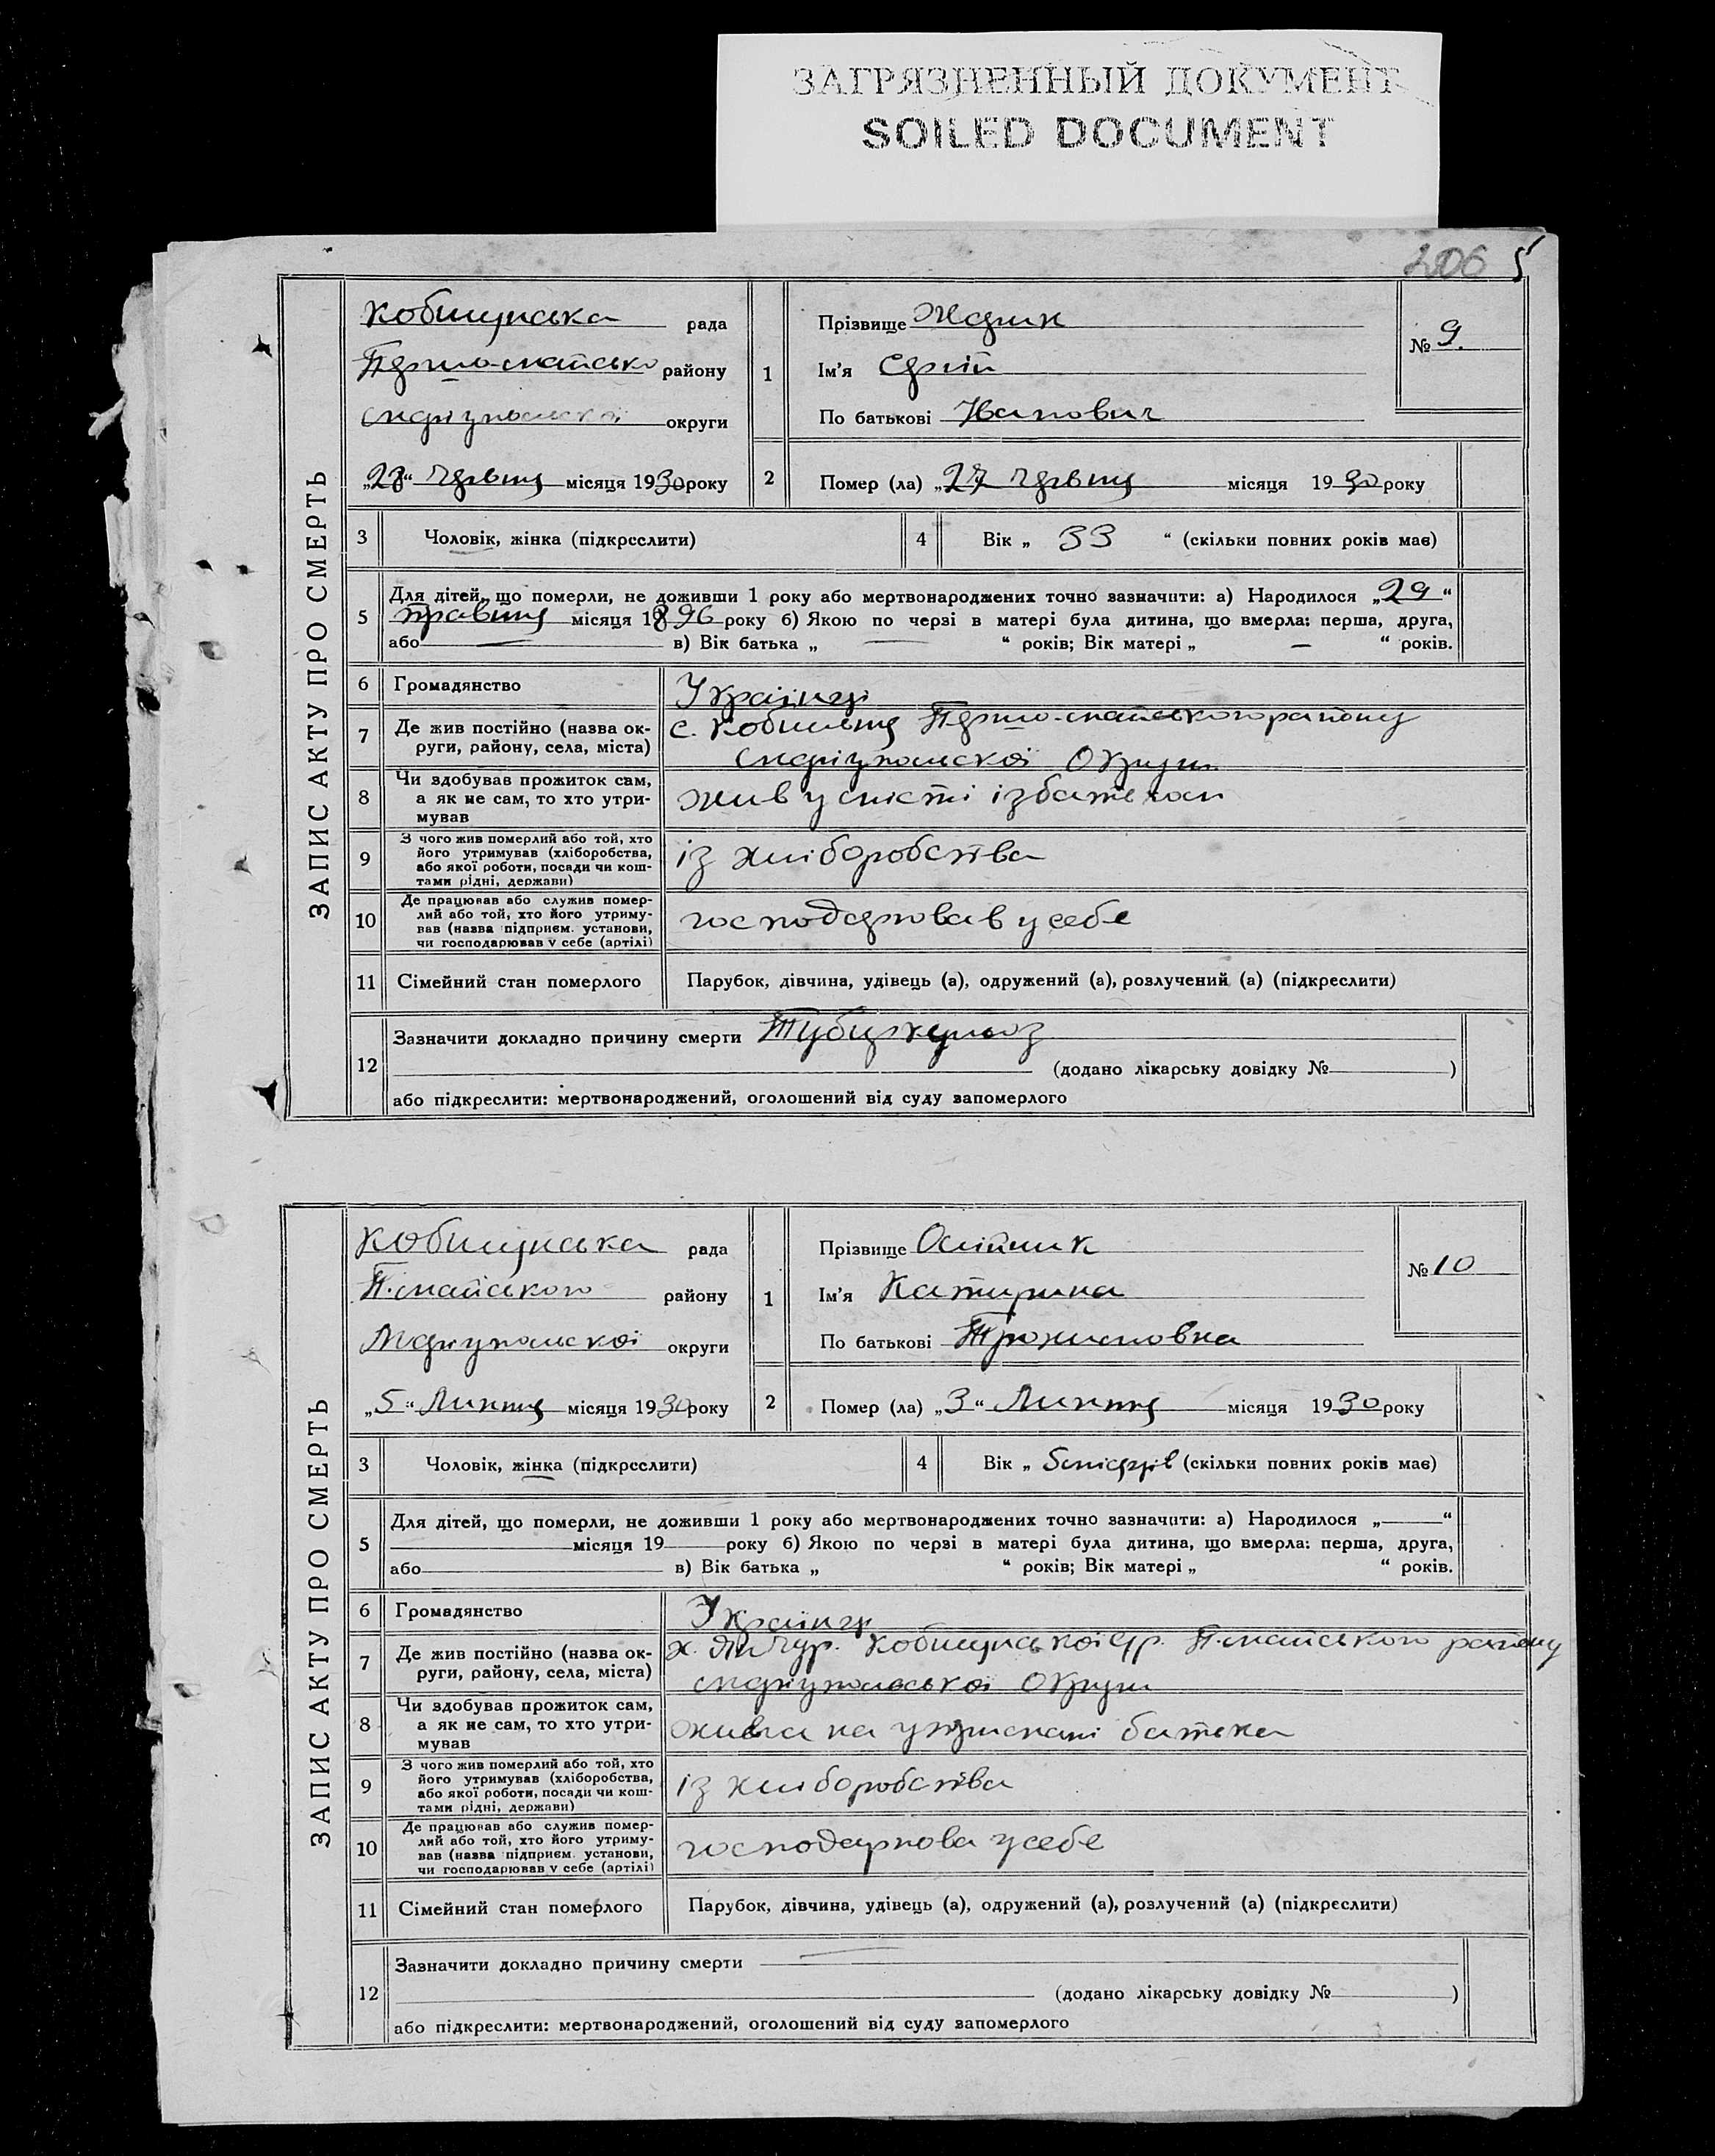 ЗАГРЯЗНЕННЫЙ ДОКУМЕНТ
SOILED DOCUMENT
206 5
ЗАПИС АКТУ ПРО СМЕРТЬ
рада
району
округи
„28“ червня місяця 1930 року
1
Прізвище
Ім'я
По батькові Иванович
№ 9.
2
Помер (ла) „27 червня місяця 1930 року
3
Чоловік, жінка (підкреслити)
4
Вік „ 33 “ (скільки повних років має)
5
Для дітей, що померли, не доживши 1 року або мертвонароджених точно зазначити: а) Народилося „29“
травня місяця 1896 року б) Якою по черзі в матері була дитина, що вмерла: перша, друга,
або — в) Вік батька „ — “ років; Вік матері „ — “ років.
6
Громадянство
7
Де жив постійно (назва ок-
руги, району, села, міста)
с. Першо-майського району
Округи
8
Чи здобував прожиток сам,
а як не сам, то хто утри-
мував
жив у місті із батьком
9
З чого жив померлий або той, хто
його утримував (хліборобства,
або якої роботи, посади чи кош-
тами рідні, держави)
із хліборобства
10
Де працював або служив помер-
лий або той, хто його утриму-
вав (назва підприєм. установи,
чи господарював у себе (артілі)
господарював у себе
11
Сімейний стан померлого
Парубок, дівчина, удівець (а), одружений (а), розлучений (а) (підкреслити)
12
Зазначити докладно причину смерти Туберкульоз
(додано лікарську довідку № )
або підкреслити: мертвонароджений, оголошений від суду запомерлого
ЗАПИС АКТУ ПРО СМЕРТЬ
рада
П.майського району
Маріупольскої округи
„5“ Липня місяця 1930 року
1
Прізвище Олійник
Ім'я Катирина
По батькові Трохимовна
№ 10
2
Помер (ла) „3“ Липня місяця 1930 року
3
Чоловік, жінка (підкреслити)
4
Вік „ 5 місяців (скільки повних років має)
5
Для дітей, що померли, не доживши 1 року або мертвонароджених точно зазначити: а) Народилося „ “
місяця 19 року б) Якою по черзі в матері була дитина, що вмерла: перша, друга,
або в) Вік батька „ “ років; Вік матері „ “ років.
6
Громадянство
7
Де жив постійно (назва ок-
руги, району, села, міста)
х. П.майського району
Округи
8
Чи здобував прожиток сам,
а як не сам, то хто утри-
мував
жила на утриманні батька
9
З чого жив померлий або той, хто
його утримував (хліборобства,
або якої роботи, посади чи кош-
тами рідні, держави)
із хліборобства
10
Де працював або служив помер-
лий або той, хто його утриму-
вав (назва підприєм. установи,
чи господарював у себе (артілі)
господарюва у себе
11
Сімейний стан померлого
Парубок, дівчина, удівець (а), одружений (а), розлучений (а) (підкреслити)
12
Зазначити докладно причину смерти —
(додано лікарську довідку № )
або підкреслити: мертвонароджений, оголошений від суду запомерлого